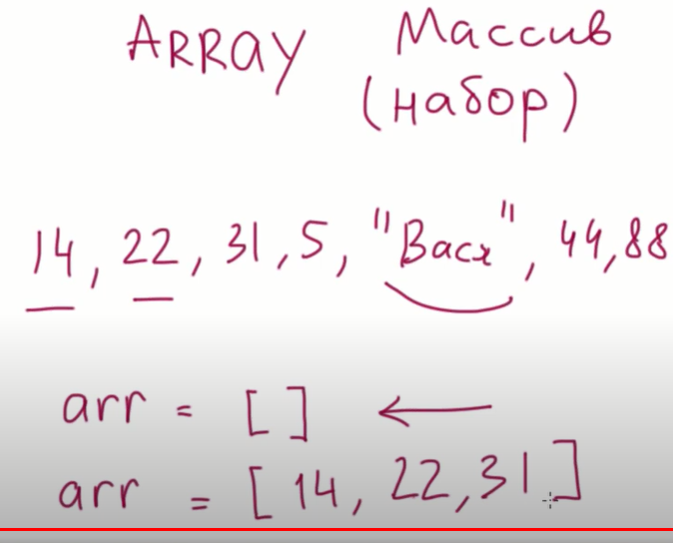 ARRAY Массив
(набор)
14, 22, 31, 5, "Вася", 44, 88
arr = [ ]
arr = [ 14, 22, 31 ]